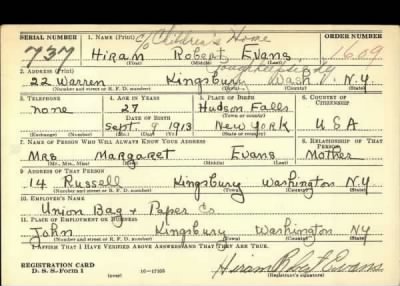 SERIAL NUMBER 1. NAME (Print) c/o Children's Home ORDER NUMBER
737 Hiram Robert Evans 1609
(First) (Middle) (Last)
2. ADDRESS (Print)
22 Warren Kingsbury Wash. N.Y.
(Number and street or R. F. D. number) (Town) (County) (State)
3. TELEPHONE 4. AGE IN YEARS 5. PLACE OF BIRTH 6. COUNTRY OF CITIZENSHIP
none 27 Hudson Falls
DATE OF BIRTH (Town or county)
Sept. 9 1913 New York USA
(Exchange) (Number) (Mo.) (Day) (Yr.) (State or country)
7. NAME OF PERSON WHO WILL ALWAYS KNOW YOUR ADDRESS 8. RELATIONSHIP OF THAT PERSON
Mrs Margaret Evans Mother
(Mr., Mrs., Miss) (First) (Middle) (Last)
9. ADDRESS OF THAT PERSON
14 Russell Kingsbury Washington NY
(Number and street or R. F. D. number) (Town) (County) (State)
10. EMPLOYER'S NAME
Union Bag + Paper Co
11. PLACE OF EMPLOYMENT OR BUSINESS
John Kingsbury Washington NY
(Number and street or R. F. D. number) (Town) (County) (State)
I AFFIRM THAT I HAVE VERIFIED ABOVE ANSWERS AND THAT THEY ARE TRUE.
REGISTRATION CARD Hiram Robert Evans
D. S. S. Form 1 (over) 16—17105 (Registrant's signature)